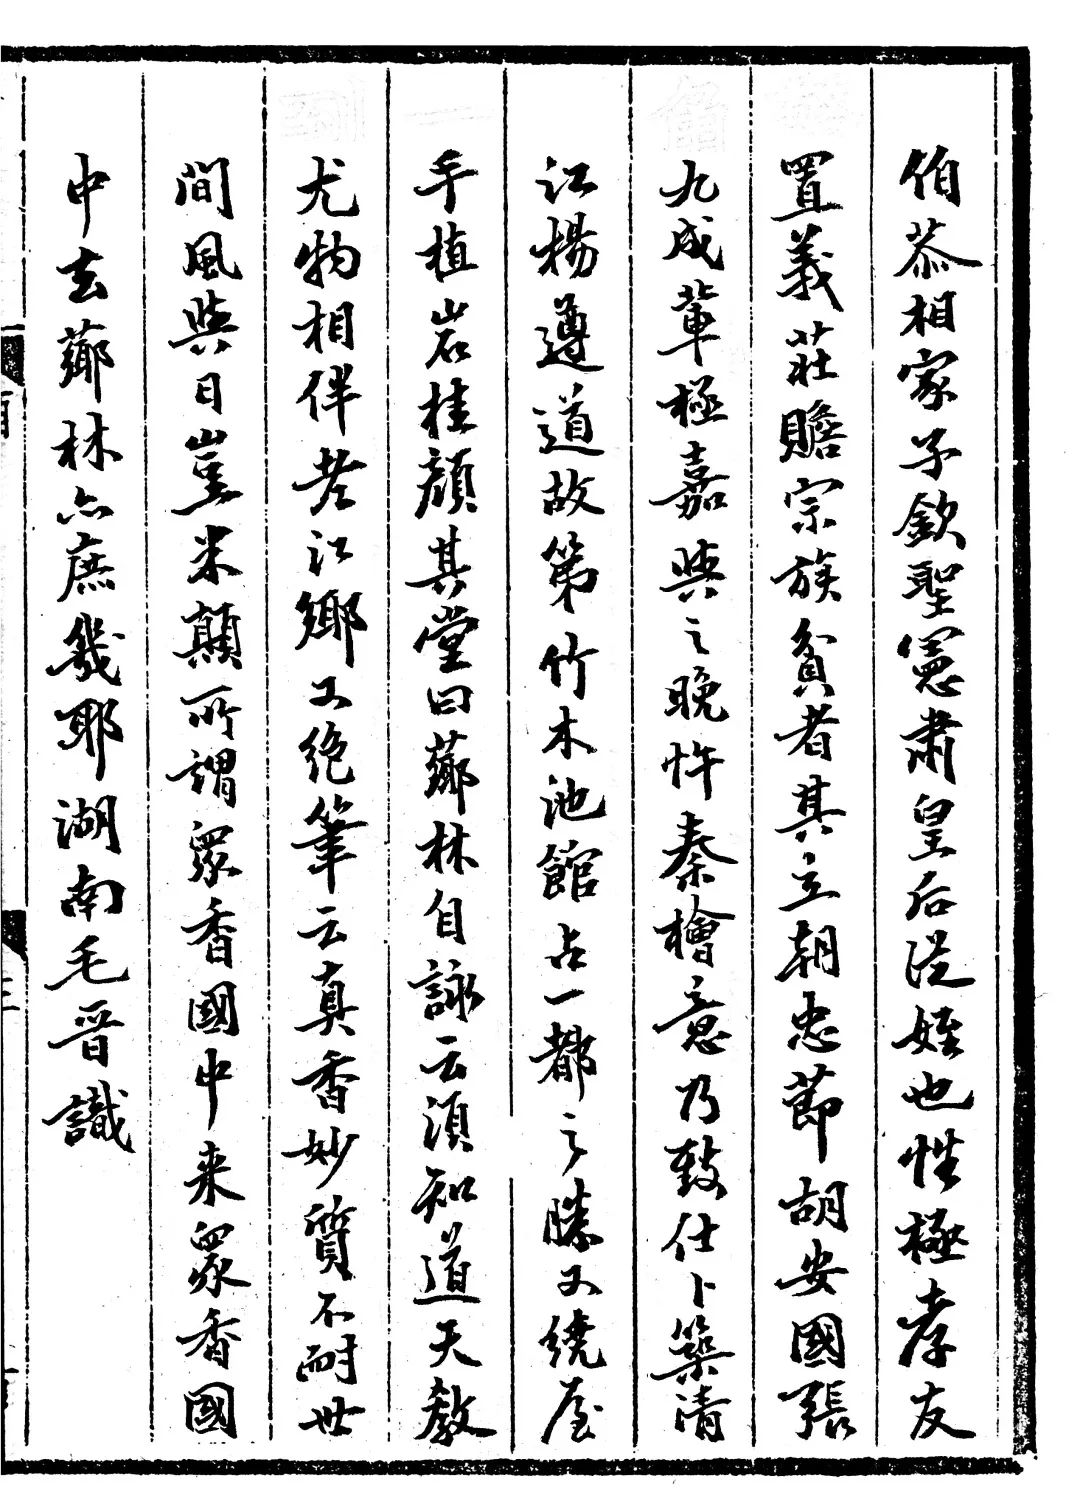 伯恭相家子欽聖憲肅皇后從姪也性極孝友
置義莊贍宗族貧者其立朝忠節胡安國張
九成輩極嘉與之晚忤秦檜意乃致仕卜築清
江楊遵道故第竹木池館占一都之勝又繞屋
手植岩桂顏其堂曰薌林自詠云須知道天教
尤物相伴老江鄉又絕筆云真香妙質不耐世
間風與日豈米顛所謂眾香國中來眾香國
中去薌林亦庶幾耶湖南毛晉識